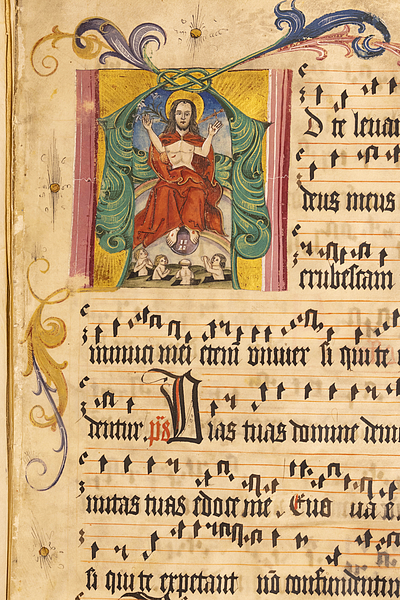 AD te leua
deus meus
erubescam
inimici mei etenī vniuer si qui te
dentur. ps Vias tuas domine dem
mitas tuas edoce me. Euo ua e
si qui te expetant nō confundentur